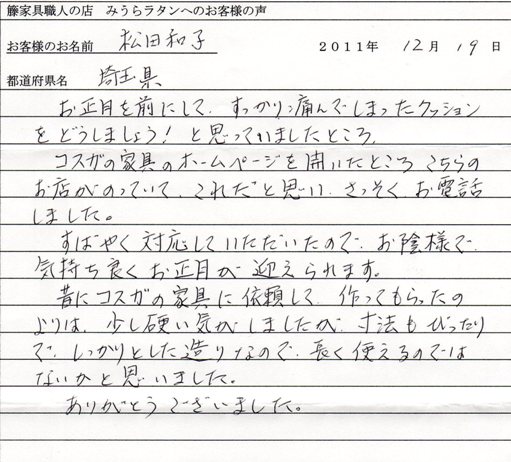 籐家具職人の店　みうらラタンへのお客様の声
お客様のお名前　松田和子　2011年　12月　19日
都道府県名　埼玉県
お正月を前にして、すっかり痛んでしまったクッション
をどうしましょう！と思っていましたところ、
コスガの家具のホームページを開いたところ こちらの
お店がのっていて、これだと思い、さっそくお電話
しました。
すばやく対応していただいたので、お陰様で、
気持ち良くお正月が迎えられます。
昔にコスガの家具に依頼して、作ってもらったの
よりは、少し硬い気がしましたが、寸法もぴったり
で、しっかりとした造りなので、長く使えるのでは
ないかと思いました。
ありがとうございました。